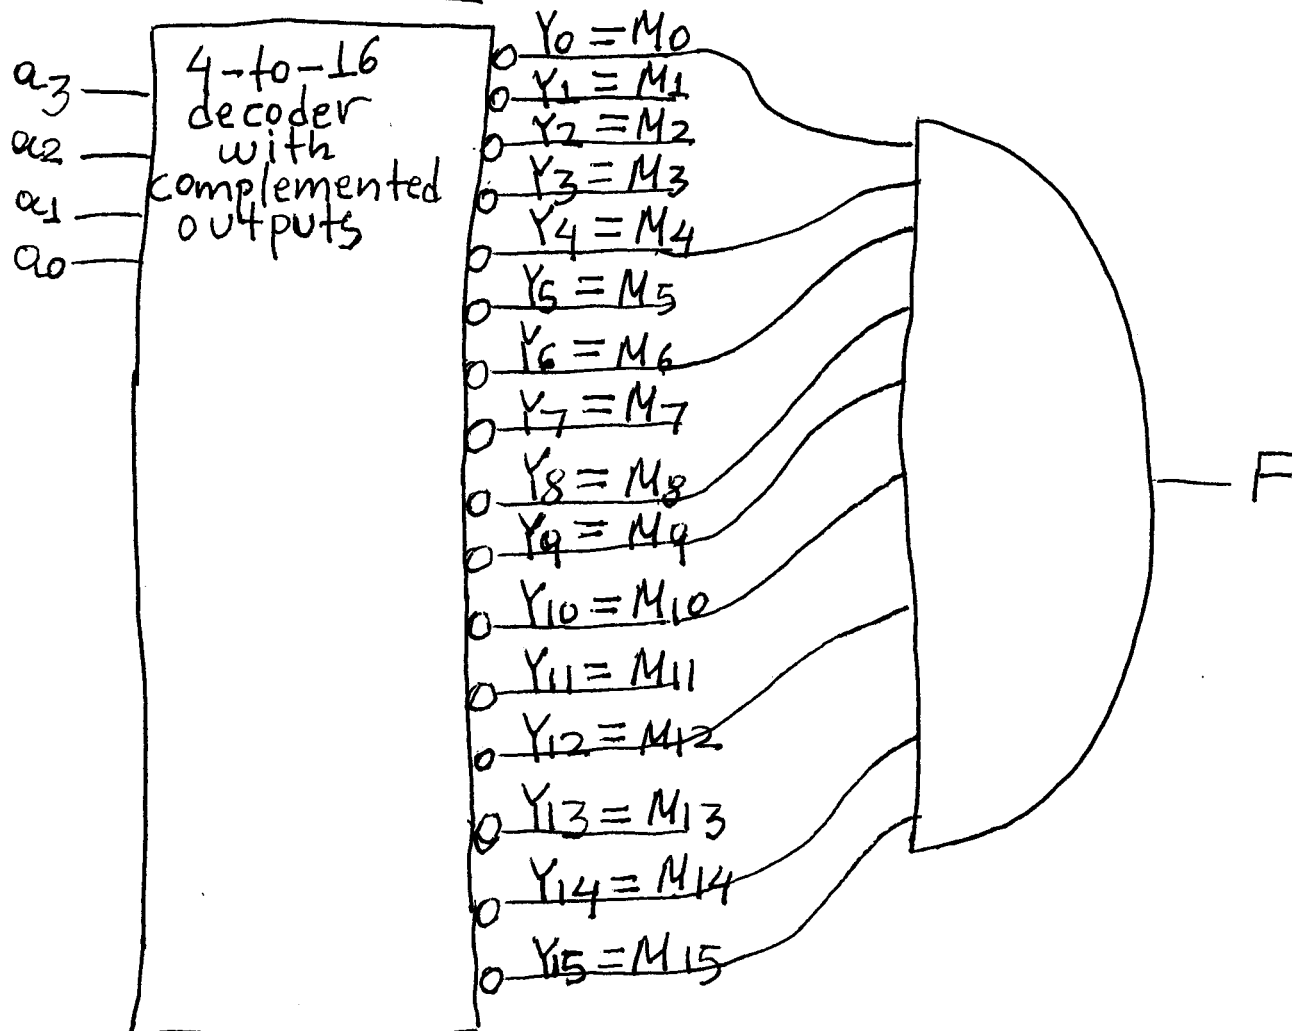 a3
a2
a1
a0
4-to-16
decoder
with
complemented
outputs
Y0 = M0
Y1 = M1
Y2 = M2
Y3 = M3
Y4 = M4
Y5 = M5
Y6 = M6
Y7 = M7
Y8 = M8
Y9 = M9
Y10 = M10
Y11 = M11
Y12 = M12
Y13 = M13
Y14 = M14
Y15 = M15
F